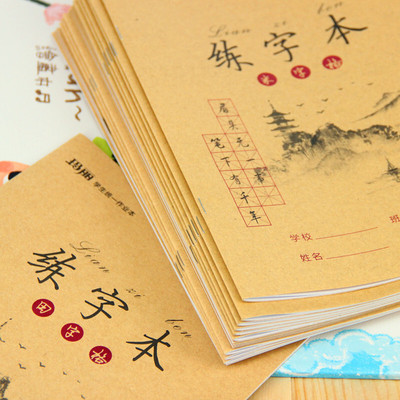 Lian zi ben
练字本
米字格
眉头无一事
笔下有千年
学校
班
姓名
玛丽
学生统一作业本
Lian zi ben
练字本
田字格